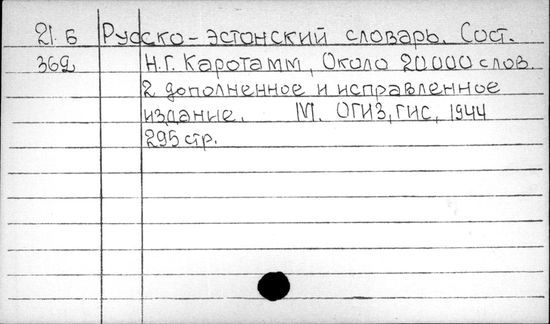 21.б Русско-эстонский словарь. Сост.
369 Н.Г. Каротамм, Около 20000 слов.
2 дополненное и исправленное
издание. М. ОГИЗ, ГИС, 1944
295 стр.